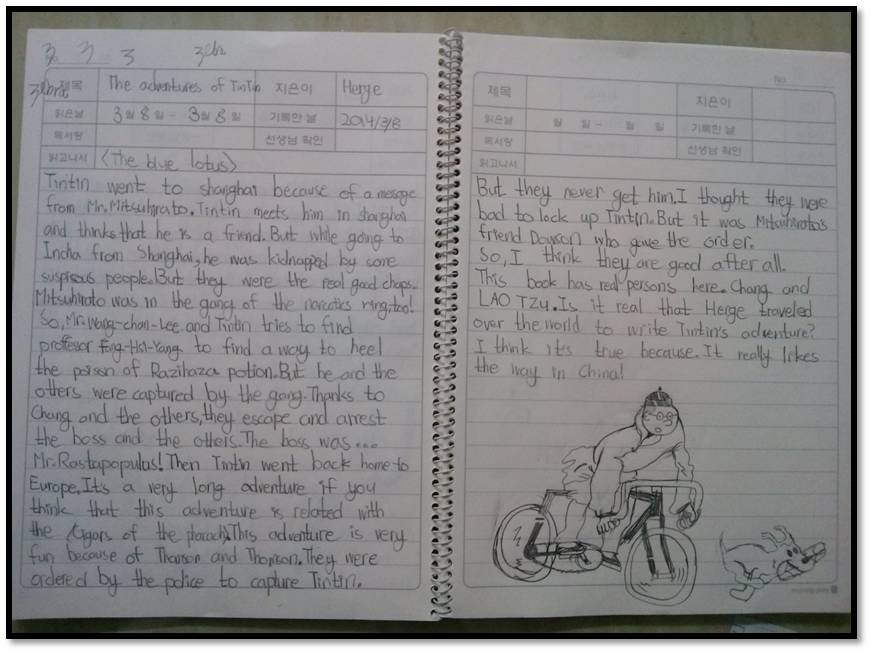 3 3 3 3cbr
3lbrd
제목 The adventures of TinTin 지은이 Herge
읽은날 3월 8일 - 3월 8일 기록한 날 2014/3/8
독서량 선생님 확인
읽고나서 <The blue lotus>
Tintin went to shanghai because of a message
from Mr.Mitsuhirato.Tintin meets him in shanghai
and thinks that he is a friend.But while going to
Incha from Shanghai,he was kidnapped by some
suspisous people.But they were the real good chaps.
Mitsuhirato was in the gang of the narcotics ring,too!
So,Mr.Wang-chan-Lee and Tintin tries to find
proffesor Fang-Hsi-Yang to find a way to heel
the poison of Razihaza potion.But he and the
others were captured by the gang.Thanks to
Chang and the others,they escape and arrest
the boss and the others.The boss was...
Mr.Rastapopulus! Then Tintin went back home to
Europe.It's a very long adventure if you
think that this adventure is related with
the cigars of the pharaoh.This adventure is very
fun because of Thomson and Thompson.They were
ordered by the police to capture TinTin.
No.
제목 지은이
읽은날 월 일 - 월 일 기록한 날
독서량 선생님 확인
읽고나서
But they never get him.I thought they were
bad to lock up Tintin.But it was Mitsuhirato's
friend Dawson who gave the order.
So,I think they are good after all.
This book has real persons here. Chang and
LAO TZU.Is it real that Herge traveled
over the world to write Tintin's adventure?
I think it's true because.It really likes
the way in China!